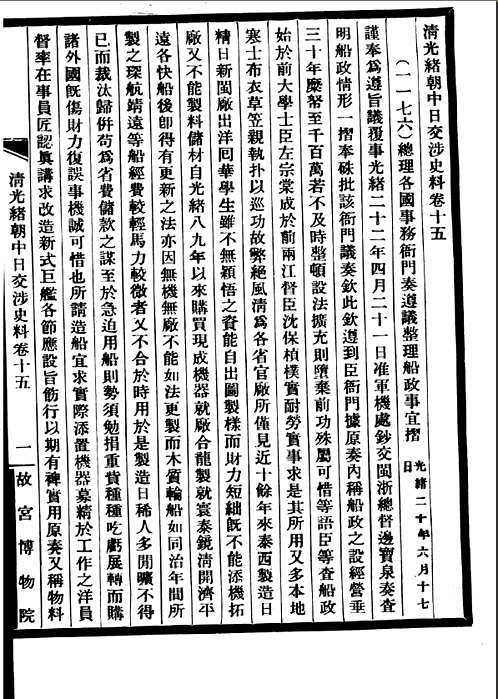 清光緒朝中日交涉史料卷十五
(一一七六)總理各國事務衙門奏遵議整理船政事宜摺 光緒二十年六月十七日
謹奉爲遵旨議覆事光緒二十二年四月二十一日准軍機處鈔交閩浙總督邊寶泉奏查
明船政情形一摺奉硃批該衙門議奏欽此欽遵到臣衙門據原奏內稱船政之設經營垂
三十年糜帑至千百萬若不及時整頓設法擴充則墮棄前功殊屬可惜等語臣等查船政
始於前大學士臣左宗棠成於前兩江督臣沈保楨樸實耐勞實事求是其所用又多本地
寒士布衣草笠親執扑以巡功故弊絕風淸爲各省官廠所僅見近十餘年來泰西製造日
精日新閩廠出洋回華學生雖不無穎悟之資能自出圖製樣而財力短絀既不能添機拓
廠又不能製料儲材自光緒八九年以來購買現成機器就廠合龍製就寰泰鏡淸開濟平
遠各快船後卽得有更新之法亦因無機無廠不能如法更製而木質輪船如同治年間所
製之琛航靖遠等船經費較輕馬力較微者又不合於時用於是製造日稀人多閒曠不得
已而裁汰歸併苟爲省費儲款之謀至於急迫用船則勢須勉捐重貲種種吃虧展轉而購
諸外國既傷財力復誤事機誠可惜也所請造船宜求實際添置機器募精於工作之洋員
督率在事員匠認眞講求改造新式巨艦各節應設旨飭行以期有裨實用原奏又稱物料
淸光緒朝中日交涉史料卷十五 一 故宮博物院